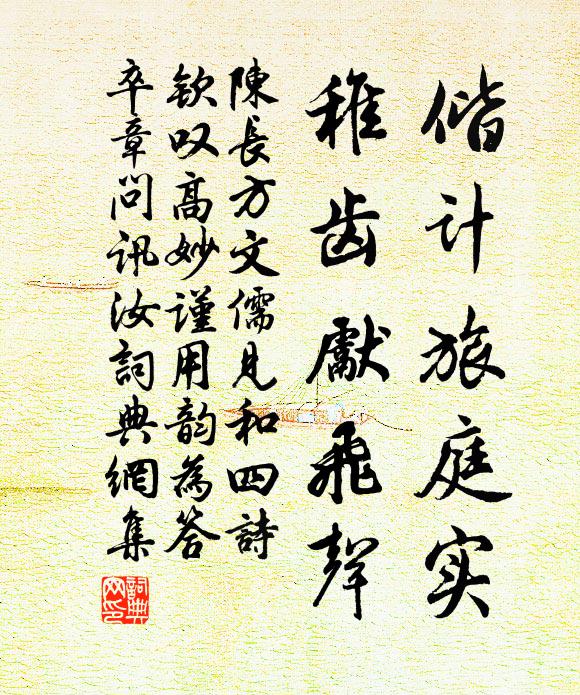 偕计旅庭实
稚齿献飞声
陳長方文儒見和四詩
欽叹高妙謹用韵為答
卒章問訊汝詞典網集
詞典网印